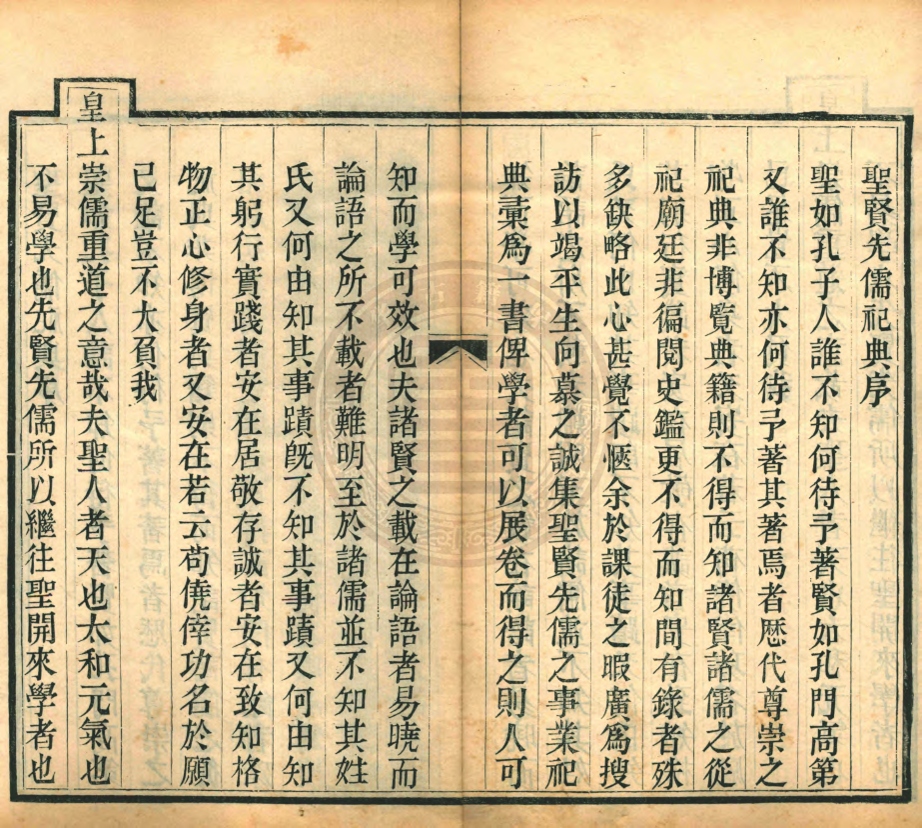 聖賢先儒祀典序
聖如孔子人誰不知何待予著賢如孔門高第
又誰不知亦何待予著其著焉者歴代尊崇之
祀典非博覽典籍則不得而知諸賢諸儒之從
祀廟廷非徧閱史鑑更不得而知間有錄者殊
多缺略此心甚覺不愜余於課徒之暇廣爲搜
訪以竭平生向慕之誠集聖賢先儒之事業祀
典彚爲一書俾學者可以展卷而得之則人可
知而學可效也夫諸賢之載在論語者易曉而
論語之所不載者難明至於諸儒並不知其姓
氏又何由知其事蹟旣不知其事蹟又何由知
其躬行實踐者安在居敬存誠者安在致知格
物正心修身者又安在若云苟僥倖功名於願
已足豈不大負我
皇上崇儒重道之意哉夫聖人者天也太和元氣也
不易學也先賢先儒所以繼往聖開來學者也